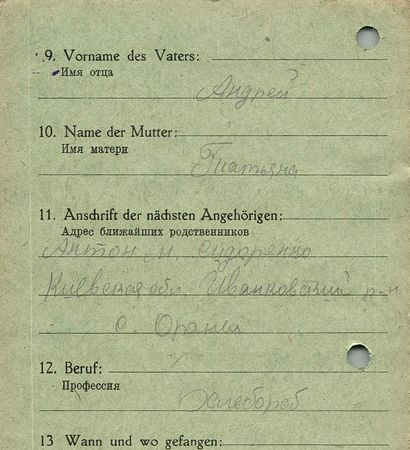 9. Vorname des Vaters:
Имя отца
Андрей
10. Name der Mutter:
Имя матери
Татьяна
11. Anschrift der nächsten Angehörigen:
Адрес ближайших родственников
Антон М. Сидоренко
Киевская обл Иванковский р-н
с. Орання
12. Beruf:
Профессия
Хлебороб
13 Wann und wo gefangen: